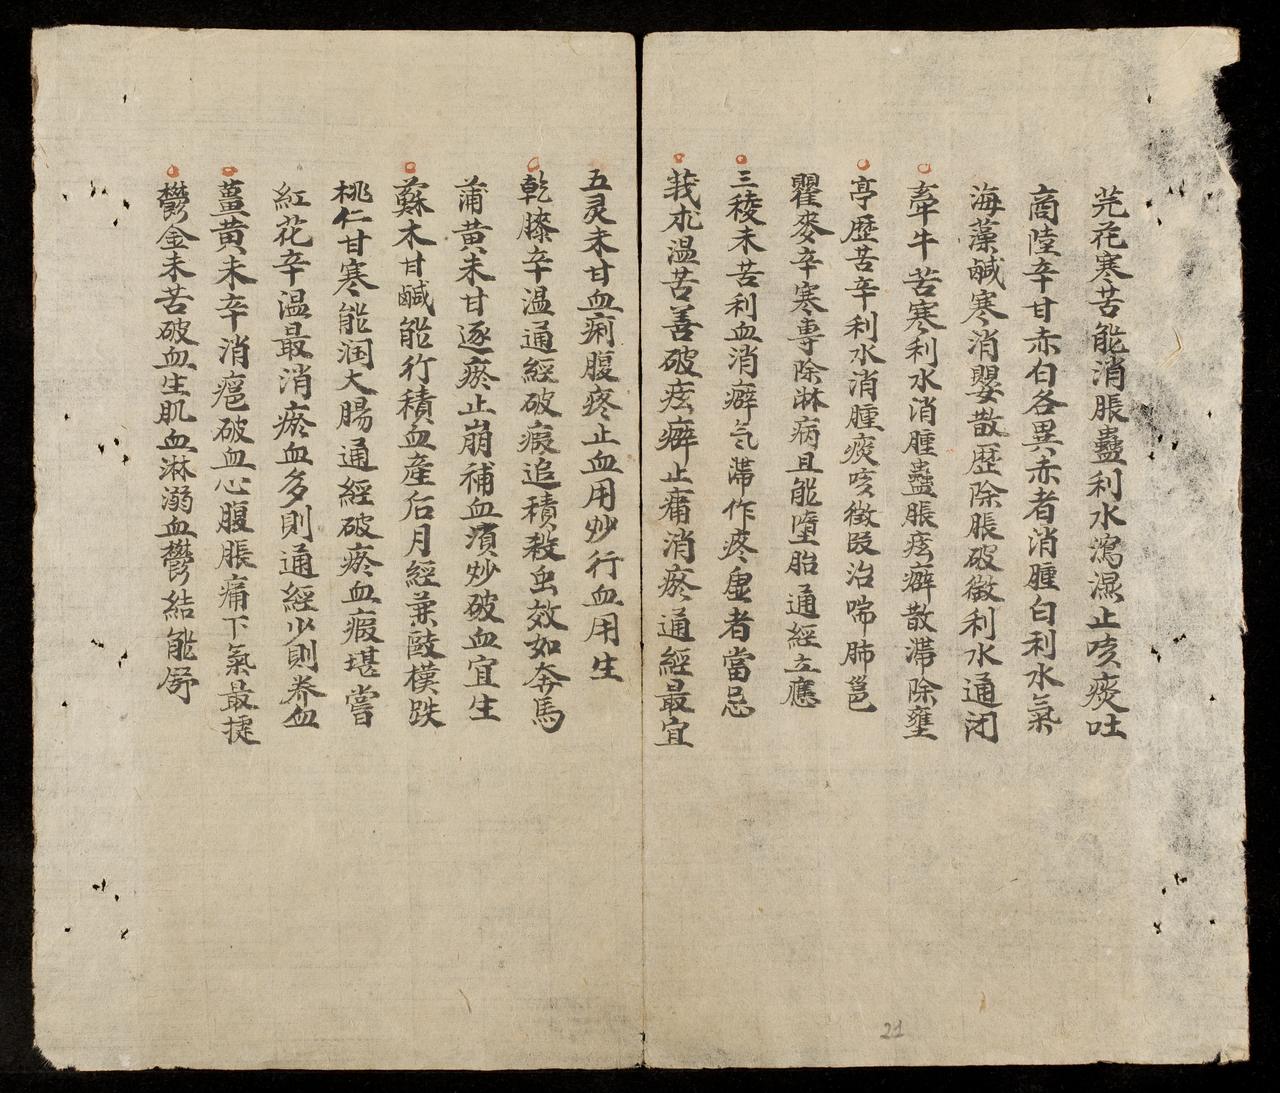 芫花寒苦能消脹蠱利水瀉濕止咳痰吐
商陸辛甘赤白各異赤者消腫白利水氣
海藻鹹寒消癭散歴除脹破徵利水通闭
牽牛苦寒利水消腫蠱脹痃癖散滯除壅
亭歷苦辛利水消腫痰咳徵叚治喘肺邕
瞿麥辛寒專除淋病且能墮胎通經立應
三稜未苦利血消癖気滯作疼虚者當忌
莪朮温苦善破痃癖止痛消瘀通經最宜
五灵未甘血痢腹疼止血用炒行血用生
乾㯡辛温通經破瘕追積殺虫效如奔馬
蒲黄未甘逐瘀止崩補血須炒破血宜生
蘇木甘鹹能行積血產后月經兼敺樸跌
桃仁甘寒能润大腸通經破瘀血瘕堪嘗
紅花辛温最消瘀血多則通經少則养血
薑黄未辛消癰破血心腹脹痛下氣最㨗
鬱金未苦破血生肌血淋溺血鬱結能舒
21